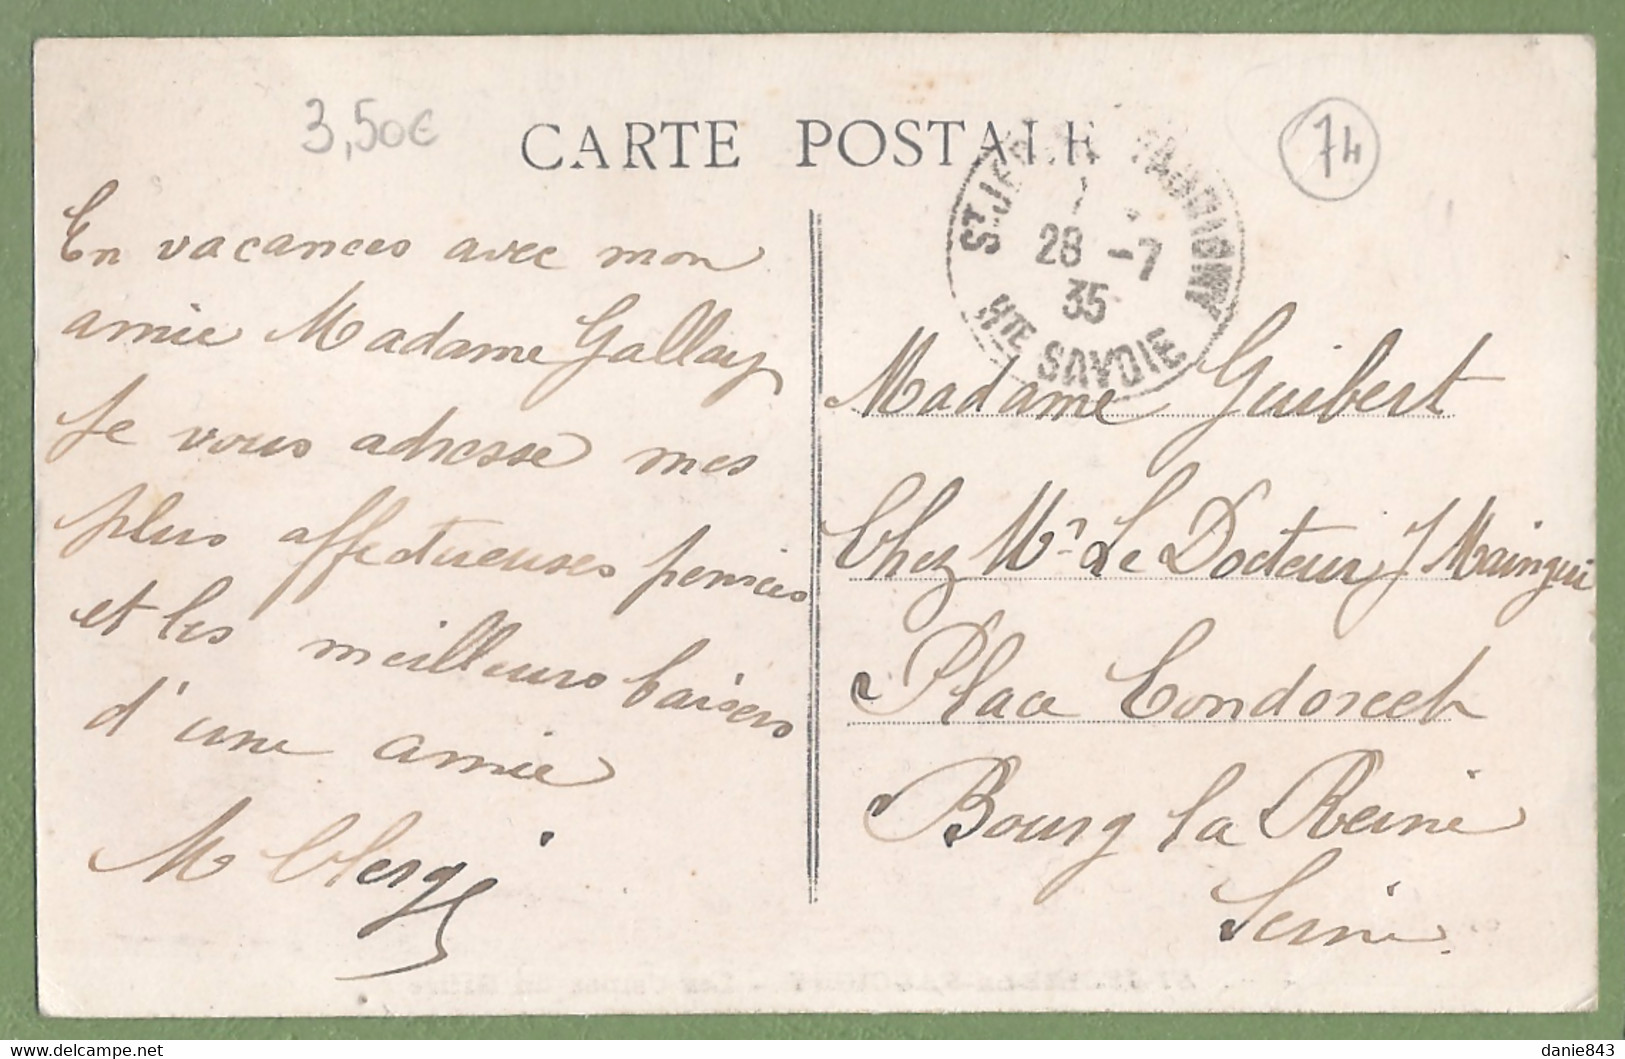 3,50€
CARTE POSTALE
74
28 -7
35
HTE SAVOIE
En vacances avec mon
amie Madame Gallay
Je vous adresse mes
plus affectueuses pensées
et les meilleurs baisers
d'une amie
M Clerg
Madame Guibert
Chez Mr Le Docteur J Maingui
Place Condorcet
Bourg la Reine
Seine
danie843